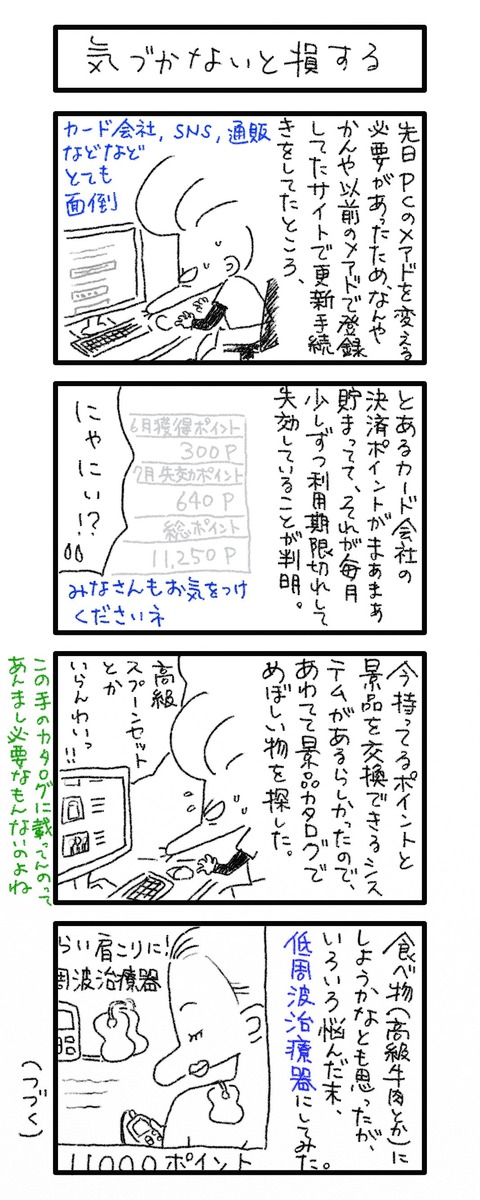 気づかないと損する
先日PCのメアドを変える
必要があったため、なんや
かんや以前のメアドで登録
してたサイトで更新手続
きをしてたところ、
カード会社, SNS, 通販
などなど
とても
面倒
とあるカード会社の
決済ポイントがまあまあ
貯まってて、それが毎月
少しずつ利用期限切れして
失効していることが判明。
6月獲得ポイント
300P
7月失効ポイント
640P
総ポイント
11,250P
にゃにい!?
みなさんもお気をつけ
くださいネ
今持ってるポイントと
景品を交換できるシス
テムがあるらしかったので、
あわてて景品カタログで
めぼしい物を探した。
高級
スプーンセット
とか
いらんわいっ!!
この手のカタログに載ってんのって
あんまし必要なもんないのよね
食べ物(高級牛肉とか)に
しようかなとも思ったが、
いろいろ悩んだ末、
低周波治療器にしてみた。
らい肩こりに!
周波治療器
11000ポイント
(つづく)